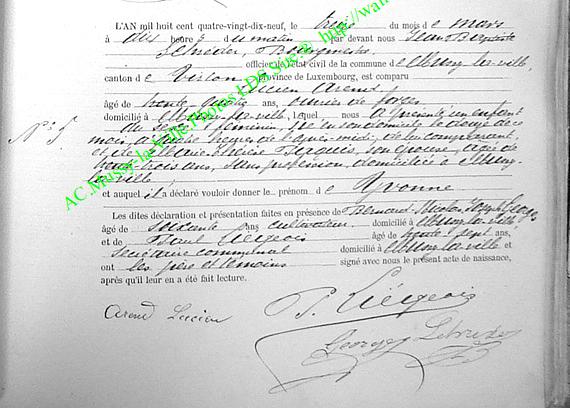 L'AN mil huit cent quatre-vingt-dix-neuf, le treize du mois de mars
à dix heures du matin par devant nous Jean Baptiste
Schréder, Bourgmestre
officier de l'état civil de la commune de Mussy-la-ville,
canton de Virton, province de Luxembourg, est comparu
Lucien Arend
âgé de trente quatre ans, ouvrier de forges
domicilié à Mussy-la-ville, lequel nous a présenté un enfant
du sexe féminin, né en son domicile le douze de ce
mois, à quatre heures de l'après-midi, de lui comparant,
et de Marie son épouse, âgée de
trente trois ans, sans profession, domiciliée à Mussy-
la-ville
et auquel il a déclaré vouloir donner le prénom de Yvonne
Les dites déclaration et présentation faites en présence de Bernard Nicolas Joseph Georges
âgé de soixante ans cultivateur domicilié à Mussy-la-ville
et de Paul Liégeois âgé de trente sept ans,
secrétaire communal domicilié à Mussy-la-ville et
ont les père et témoins signé avec nous le présent acte de naissance,
après qu'il leur en a été fait lecture.
N° 5
Arend Lucien
P. Liégeois
Georges
AC.Mussy-la-Ville.Photos LDS Soc.@ http://wan